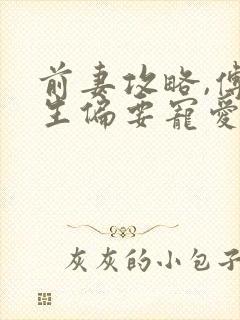 前妻攻略,傅
生偏要寵愛
灰灰的小包子